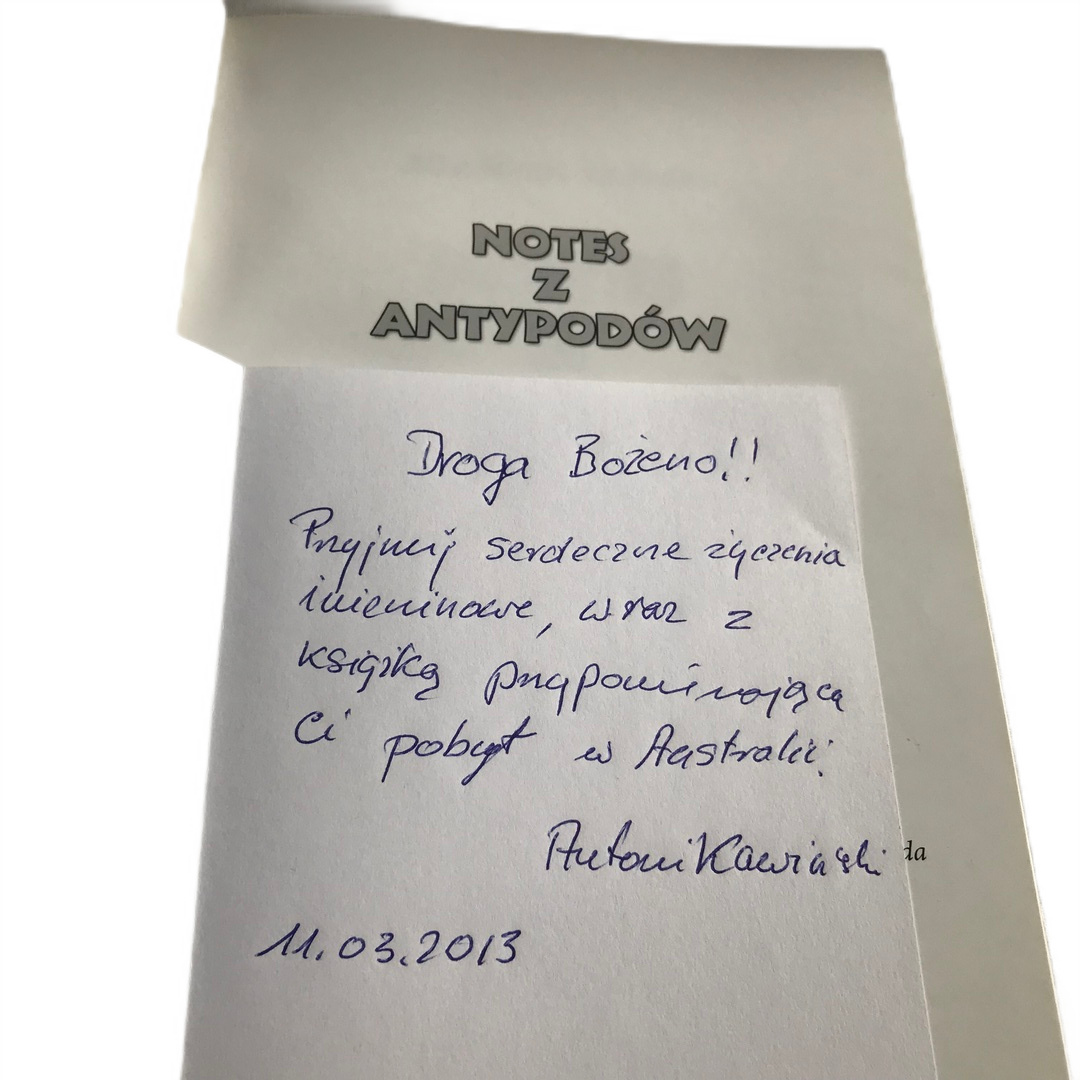 NOTES
Z
ANTYPODÓW
Droga Bożeno!!
Przyjmij serdeczne życzenia
imieninowe, wraz z
książką przypominającą
Ci pobyt w Australii.
Antoni Kawiński
da
11.03.2013